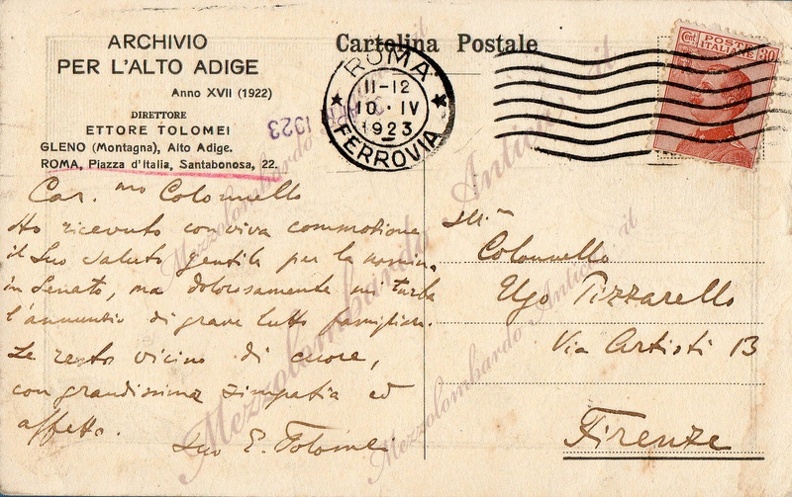 ARCHIVIO
PER L'ALTO ADIGE
Anno XVII (1922)
DIRETTORE
ETTORE TOLOMEI
GLENO (Montagna), Alto Adige.
ROMA, Piazza d'Italia, Santabonosa, 22.
Cartolina Postale
ROMA
11-12
10 · IV
1923
FERROVIA
1923
Cent. POSTE 30
ITALIANE
Car.mo Colonnello
Ho ricevuto con viva commozione
il Suo saluto gentile per la nomina
in Senato, ma dolorosamente mi turba
l'annuntio di grave lutto famigliare.
Le resto vicino di cuore,
con grandissima simpatia ed
affetto.
Suo E. Tolomei
Ill.mo
Colonnello
Ugo Pizzarello
Via Artisti 13
Firenze
Mezzolombardo Antica .it
Mezzolombardo Antica .it